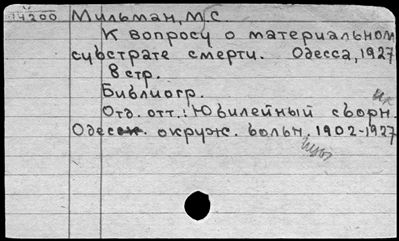 14200 Мильман, М.С.
К вопросу о материальном
субстрате смерти. Одесса, 1927
8 стр.
Библиогр.
Отд. отт.: Юбилейный сборн.
Одесск. окруж. больн. 1902-1927